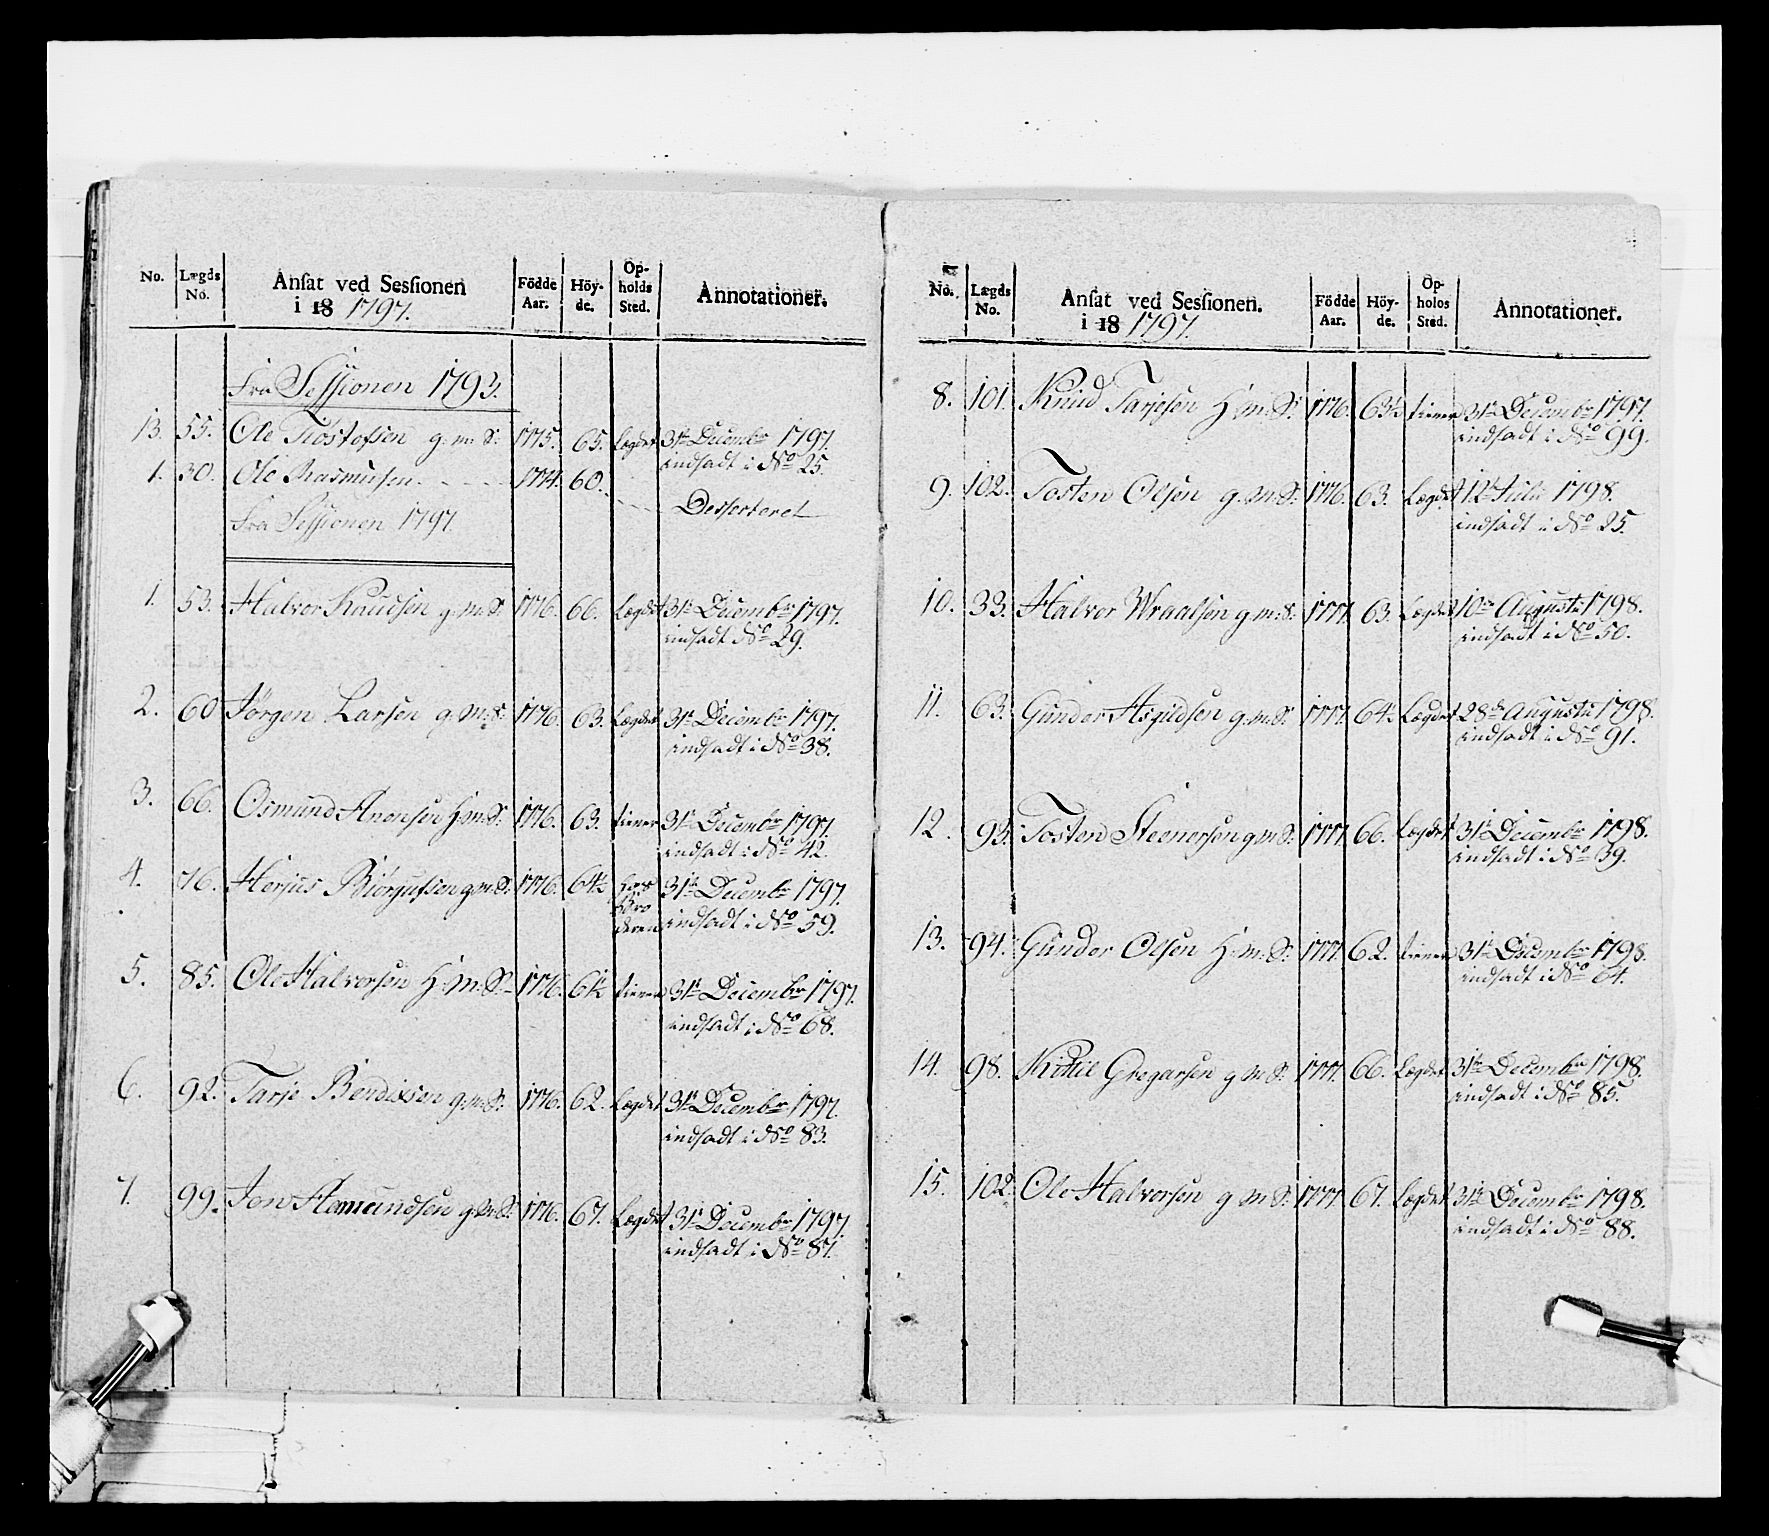 No. Lægds No. Ansat ved Sessionen i 18 1797. Födde Aar. Höyde. Opholds Sted. Annotationer.
Fra Sessionen 1793.
13. 55. Ole Tiostofsen g: m: S: 1775. 65. Lægdet 31te Decembr 1797.
indsadt i No 25.
1. 30. Ole Rasmusen 1774. 60. Desserteret
Fra Sessionen 1797
1. 53. Halvor Knudsen g: m: S: 1776. 66. Lægdet 31te Decembr 1797.
indsadt No 29.
2. 60 Jørgen Larsen g: m: S: 1776. 63. Lægdet 31te Decembr 1797.
indsadt i No 38.
3. 66. Osmund Anonsen H: m: S: 1776. 63. tiener 31te Decembr 1797.
indsadt i No 42.
4. 76. Herjus Biørgufsen g: m: S: 1776. 64½ hos Broderen 31te Decembr 1797.
indsadt i No 59.
5. 85. Ole Halvorsen H: m: S: 1776. 61½ tiener 31te Decembr 1797.
indsadt i No 68.
6. 92. Tarje Bendixsen g: m: S: 1776. 62. Lægdet 31te Decembr 1797.
indsadt i No 83.
7. 99. Jon Aamundsen g: m: S: 1776. 67. Lægdet 31te Decembr 1797.
indsadt i No 87.
No. Lægds No. Ansat ved Sessionen. i 18 1797. Födde Aar. Höyde. Opholds Sted. Annotationer.
8. 101. Knud Tarjesen H: m: S: 1776. 63½ tiener 31te Decembr 1797.
indsadt i No 99.
9. 102. Tosten Olsen g: m: S: 1776. 63. Lægdet 12te Julii 1798.
indsadt i No 25.
10. 33. Halvor Wraalsen g: m: S: 1777. 63. Lægdet 10de Augusti 1798.
indsadt i No 50.
11. 63. Gunder Asgildsen g: m: S: 1777. 64½ Lægdet 28de Augusti 1798.
indsadt i No 91.
12. 93. Tosten Steenersen g: m: S: 1777. 66. Lægdet 31te Decembr 1798.
indsadt i No 39.
13. 94. Gunder Olsen H: m: S: 1777. 62. tiener 31te Decembr 1798.
indsadt i No 64.
14. 98. Kittil Gregarsen g: m: S: 1777. 66. Lægdet 31te Decembr 1798.
indsadt i No 85.
15. 102. Ole Halvorsen g: m: S: 1777. 67. Lægdet 31te Decembr 1798.
indsadt i No 88.